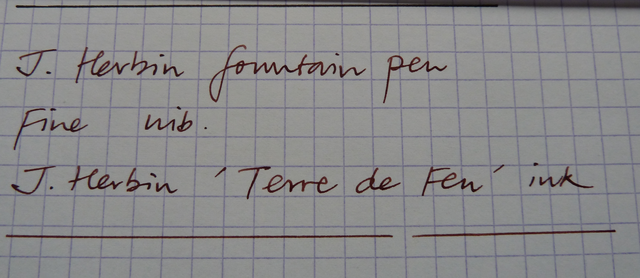 J. Herbin fountain pen
Fine nib.
J. Herbin 'Terre de Feu' ink